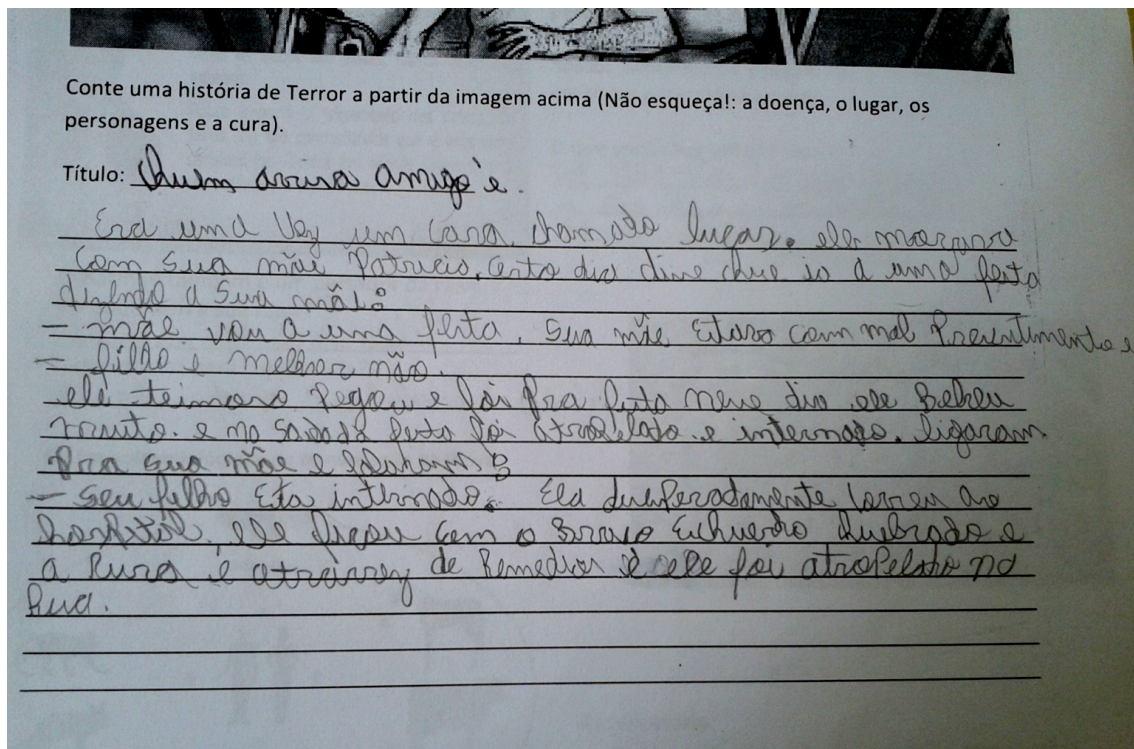 Conte uma história de Terror a partir da imagem acima (Não esqueça!: a doença, o lugar, os
personagens e a cura).
Título: Quem avisa amigo é.
Era uma Vez um Cara, chamado lucas. ele morava
Com Sua mãe Patricia, certo dia dise que ia a uma festa
dizendo a Sua mãe:
– mãe vou a uma festa, Sua mãe Estava com mal
– filho e melhor não.
ele teimoso Pegou e foi Pra festa nese dia ele Bebeu
muito. e na festa foi atropelado. e internado. ligaram
Pra sua mãe e falaram:
– Seu filho Esta internado. Ela Correu ao
hospital, ele ficou com o Braço Quebrado e
a e de Remedios e ele foi atropelado na
Rua.